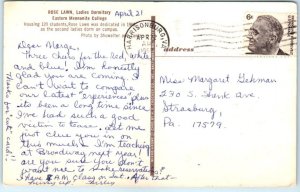 ROSE LAWN, Ladies Dormitory
Eastern Mennonite College
Housing 109 students, Rose Lawn was dedicated in
as the second ladies dorm on campus.
Photo by Showalter
April 21
Dear Marge,
Three cheers for the red, white,
and blue! I'm honestly
glad you are coming. I
can't wait to compare
our latest "experiences" plus
its been a long time since
I've had such a good
victim to tease. Let me
just clue you in on
this much: I'm teaching
at Broadway next year!
are you sure you don't
want me to make reservations?
have 8 A.M. class or not. After that-
Hurry up! Shirley
Thanks for "cute" card!!
HARRISONBURG, VA.
APR
AM
6¢
address
Miss Margaret Gehman
230 S. Shenk Ave.
Strasburg,
Pa. 17579